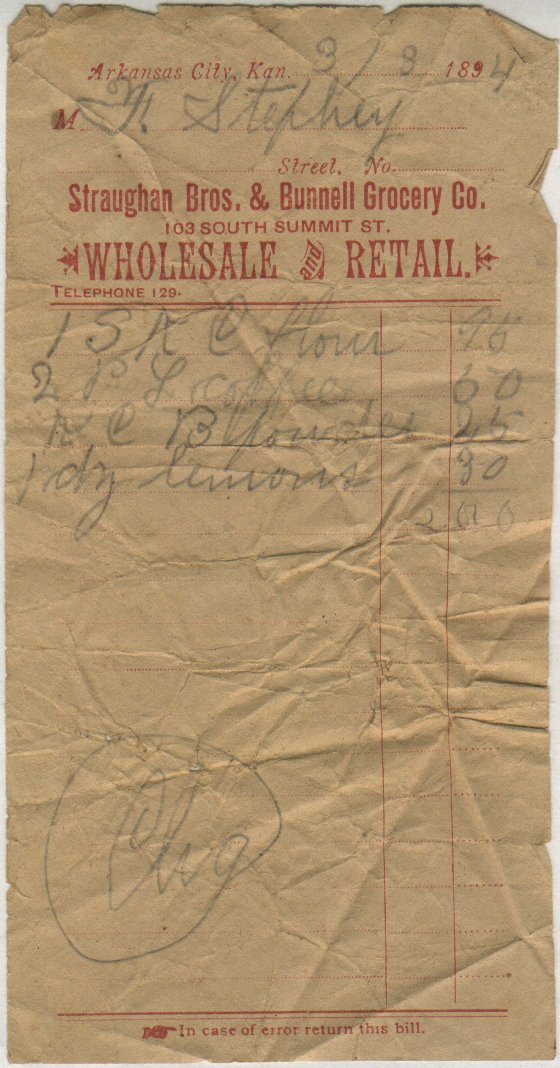 Arkansas City, Kan. 3/3 1894
M F. Stephey
Street, No.
Straughan Bros. & Bunnell Grocery Co.
103 SOUTH SUMMIT ST.
WHOLESALE and RETAIL.
TELEPHONE 129.
1 S K C flour 95
2 P L coffee 50
K C B Powder 25
1 dz lemons 30
2 00
Chg
In case of error return this bill.